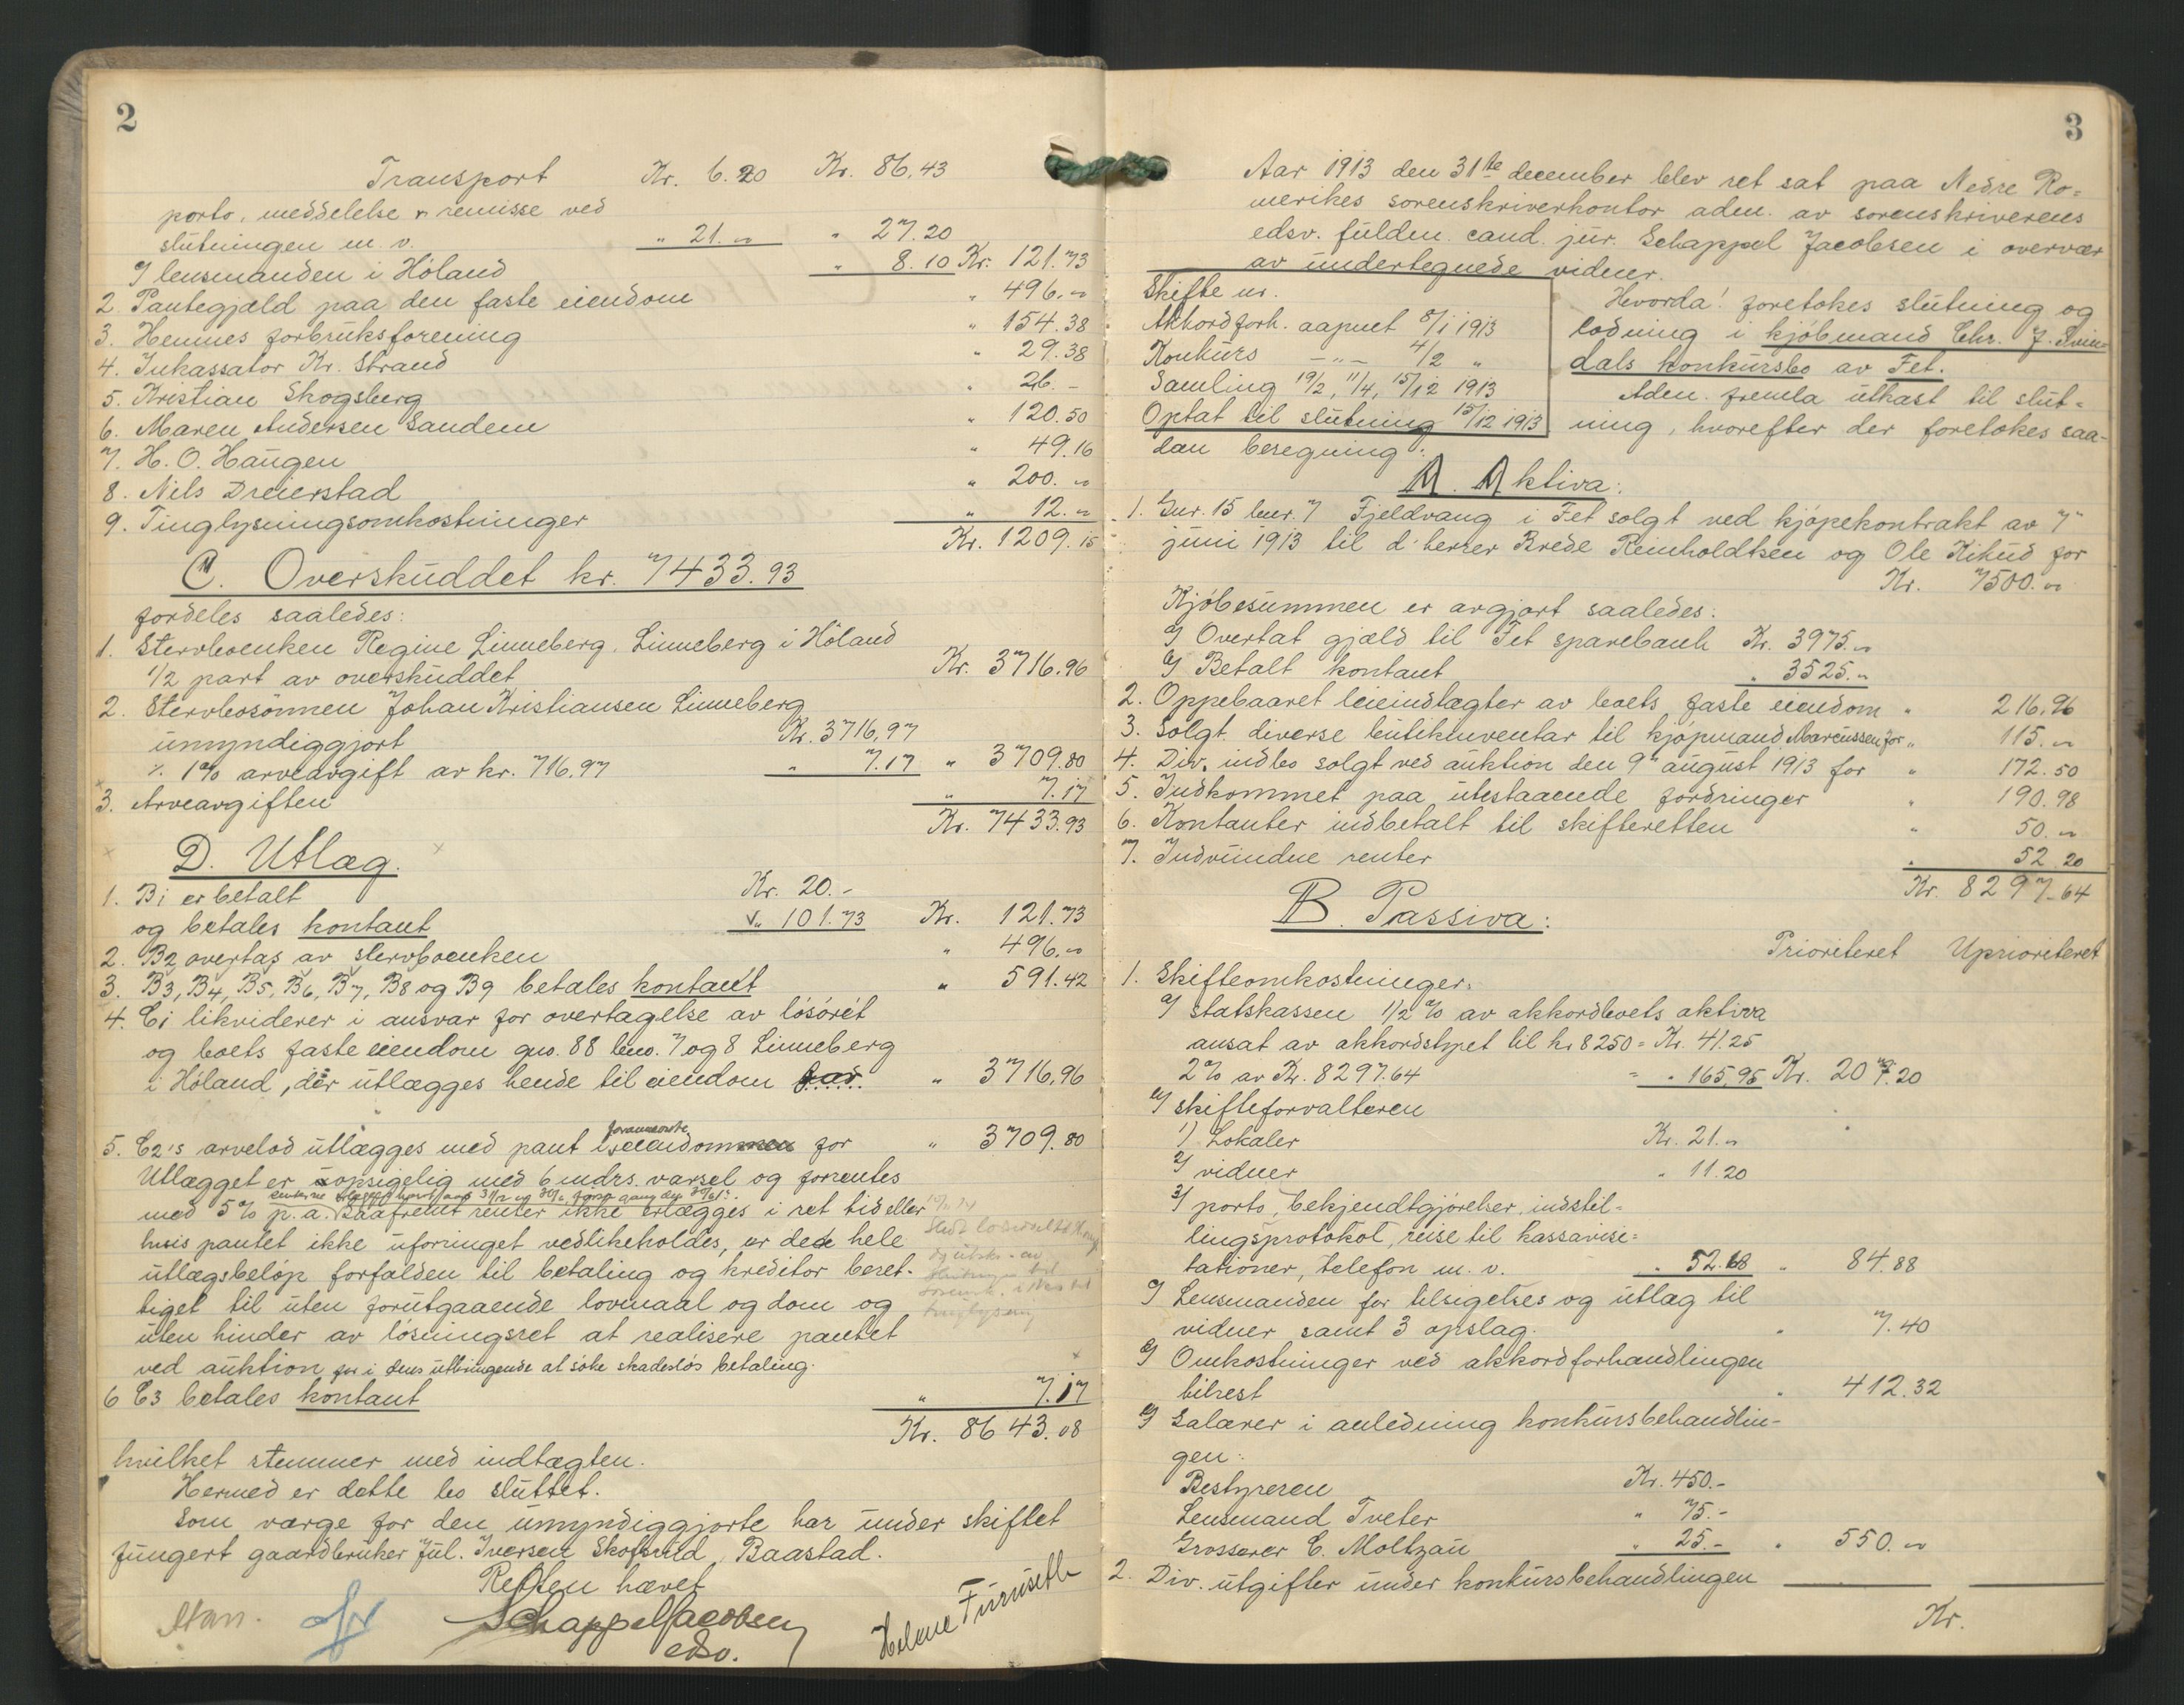 2
Transport Kr. 6.20 Kr. 86.43
porto, meddelelse v. remisse ved
slutningen m. v. " 21.00 " 27.20
lensmanden i Höland " 8.10 Kr. 121.73
2 Pantegjæld paa den faste eiendom " 496.00
3. Hemnes forbruksforening " 154.38
4. Inkassator Kr. Strand " 29.38
5. Kristian Skogsberg " 26.-
6. Maren Andersen Sandem " 120.50
7. H. O. Haugen " 49.16
8. Nils Dreierstad " 200.00
9. Tinglysningsomkostninger " 12.00
Kr. 1209.15
C. Overskuddet kr. 7433.93
fordeles saaledes:
1. Stervboenken Regine Linneberg, Linneberg i Höland
1/2 part av overskuddet Kr. 3716.96
2. Stervbosönnen Johan Kristiansen Linneberg
umyndiggjort Kr. 3716.97
% 1% arveavgift av kr. 716.97 " 7.17 " 3709.80
3. Arveavgiften " 7.17
Kr. 7433.93
D. Utlæg.
1. B1 er betalt Kr. 20.-
og betales kontant " 101.73 Kr. 121.73
2. B2 overtas av stervboenken " 496.00
3. B3, B4, B5, B6, B7, B8 og B9 betales kontant " 591.42
4. C1 likviderer i ansvar for overtagelse av lösöret
og boets faste eiendom gno. 88 bno. 7 og 8 Linneberg
i Höland, der utlægges hende til eiendom " 3716.96
5. C2's arvelod utlægges med pant i forannævnte eiendom for " 3709.80
Utlægget er uopsigelig med 6 mdrs. varsel og forrentes
med 5% p. a. Saafremt renter ikke erlægges i ret tid eller
hvis pantet ikke uforringet vedlikeholdes, er det hele
utlægsbelöp forfalden til betaling og kreditor beret-
tiget til uten forutgaaende lovmaal og dom og
uten hinder av lösningsret at realisere pantet
ved auktion for i dens utbringende at söke skadeslös betaling.
6 C3 betales kontant " 7.17
Kr. 8643.08
hvilket stemmer med indtægten.
Hermed er dette bo sluttet.
Som værge for den umyndiggjorte har under skiftet
fungert gaardbruker Jul. Iversen Skofsrud, Baastad.
Retten hævet
Schappel Jacobsen
edsv.
Helene Furuseth
3
Aar 1913 den 31te december blev ret sat paa Nedre Ro-
merikes sorenskriverkontor adm. av sorenskriverens
edsv. fuldm. cand. jur. Schappel Jacobsen i overvær
av undertegnede vidner.
Skifte nr.
Akkordforh. aapnet 8/1 1913
Konkurs -"- 4/2 "
Samling 19/2, 11/4, 15/12 1913
Optat til slutning 15/12 1913
Hvorda! foretokes slutning og
lodning i kjöbmand Chr. J. Svin-
dals konkursbo av Fet.
Adm. fremla utkast til slut-
ning, hvorefter der foretokes saa-
dan beregning:
A. Aktiva:
1. Gnr. 15 bnr. 7 Fjeldvang i Fet solgt ved kjöpekontrakt av 7"
juni 1913 til d'herrer Brede Reinholdtsen og Ole Kihud for
Kr. 7500.00
Kjöbesummen er avgjort saaledes:
a) Overtat gjæld til Fet sparebank Kr. 3975.00
b) Betalt kontant " 3525.00
2. Oppebaaret leieindtægter av boets faste eiendom " 216.96
3. Solgt diverse butikinventar til kjöpmand Marcussen for " 115.00
4. Div. indbo solgt ved auktion den 9" august 1913 for " 172.50
5. Indkommet paa utestaaende fordringer " 190.98
6. Kontanter indbetalt til skifteretten " 50.00
7. Indvundne renter " 52.20
Kr. 8297.64
B. Passiva:
Prioriteret Uprioriteret
1. Skifteomkostninger:
a) statskassen 1/2 % av akkordboets aktiva
ansat av akkordstyret til kr 8250 = Kr. 41.25
2% av Kr. 8297.64 = " 165.95 Kr. 207.20
b) skifteforvalteren
1) Lokaler Kr. 21.00
2) vidner " 11.20
3) porto, bekjendtgjörelser, indstil-
lingsprotokol, reise til kassavisi-
tationer, telefon m. v. " 52.68 " 84.88
c) Lensmanden for tilsigelses og utlæg til
vidner samt 3 opslag. " 7.40
d) Omkostninger ved akkordforhandlingen
tilrest " 412.32
e) Salærer i anledning konkursbehandlin-
gen:
Bestyreren Kr. 450.-
Lensmand Tveter " 75.-
Grosserer C. Moltzau " 25.- " 550.00
2. Div. utgifter under konkursbehandlingen
Kr.